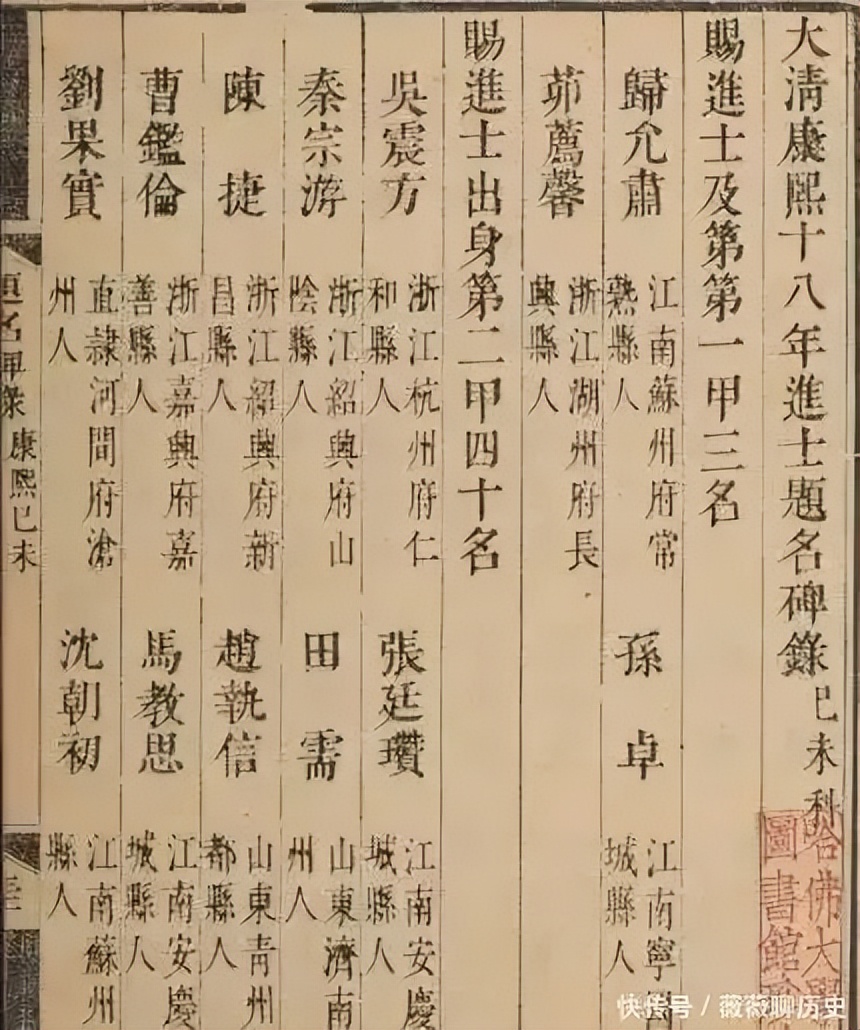 大淸康熙十八年進士題名碑錄己未科
賜進士及第第一甲三名
歸允肅 江南蘇州府常熟縣人
孫卓 江南寧國 城縣人
茆薦馨 浙江湖州府長興縣人
賜進士出身第二甲四十名
吳震方 浙江杭州府仁和縣人
張廷瓚 江南安慶 城縣人
秦宗游 浙江紹興府山陰縣人
田需 山東濟南 州人
陳捷 浙江紹興府新昌縣人
趙執信 山東靑州 都縣人
曹鑑倫 浙江嘉興府嘉善縣人
馬教思 江南安慶 城縣人
劉果實 直隸河間府滄州人
沈朝初 江南蘇州 縣人
題名碑錄 康熙己未
三
哈佛大學
圖書館
快传号 / 薇薇聊历史